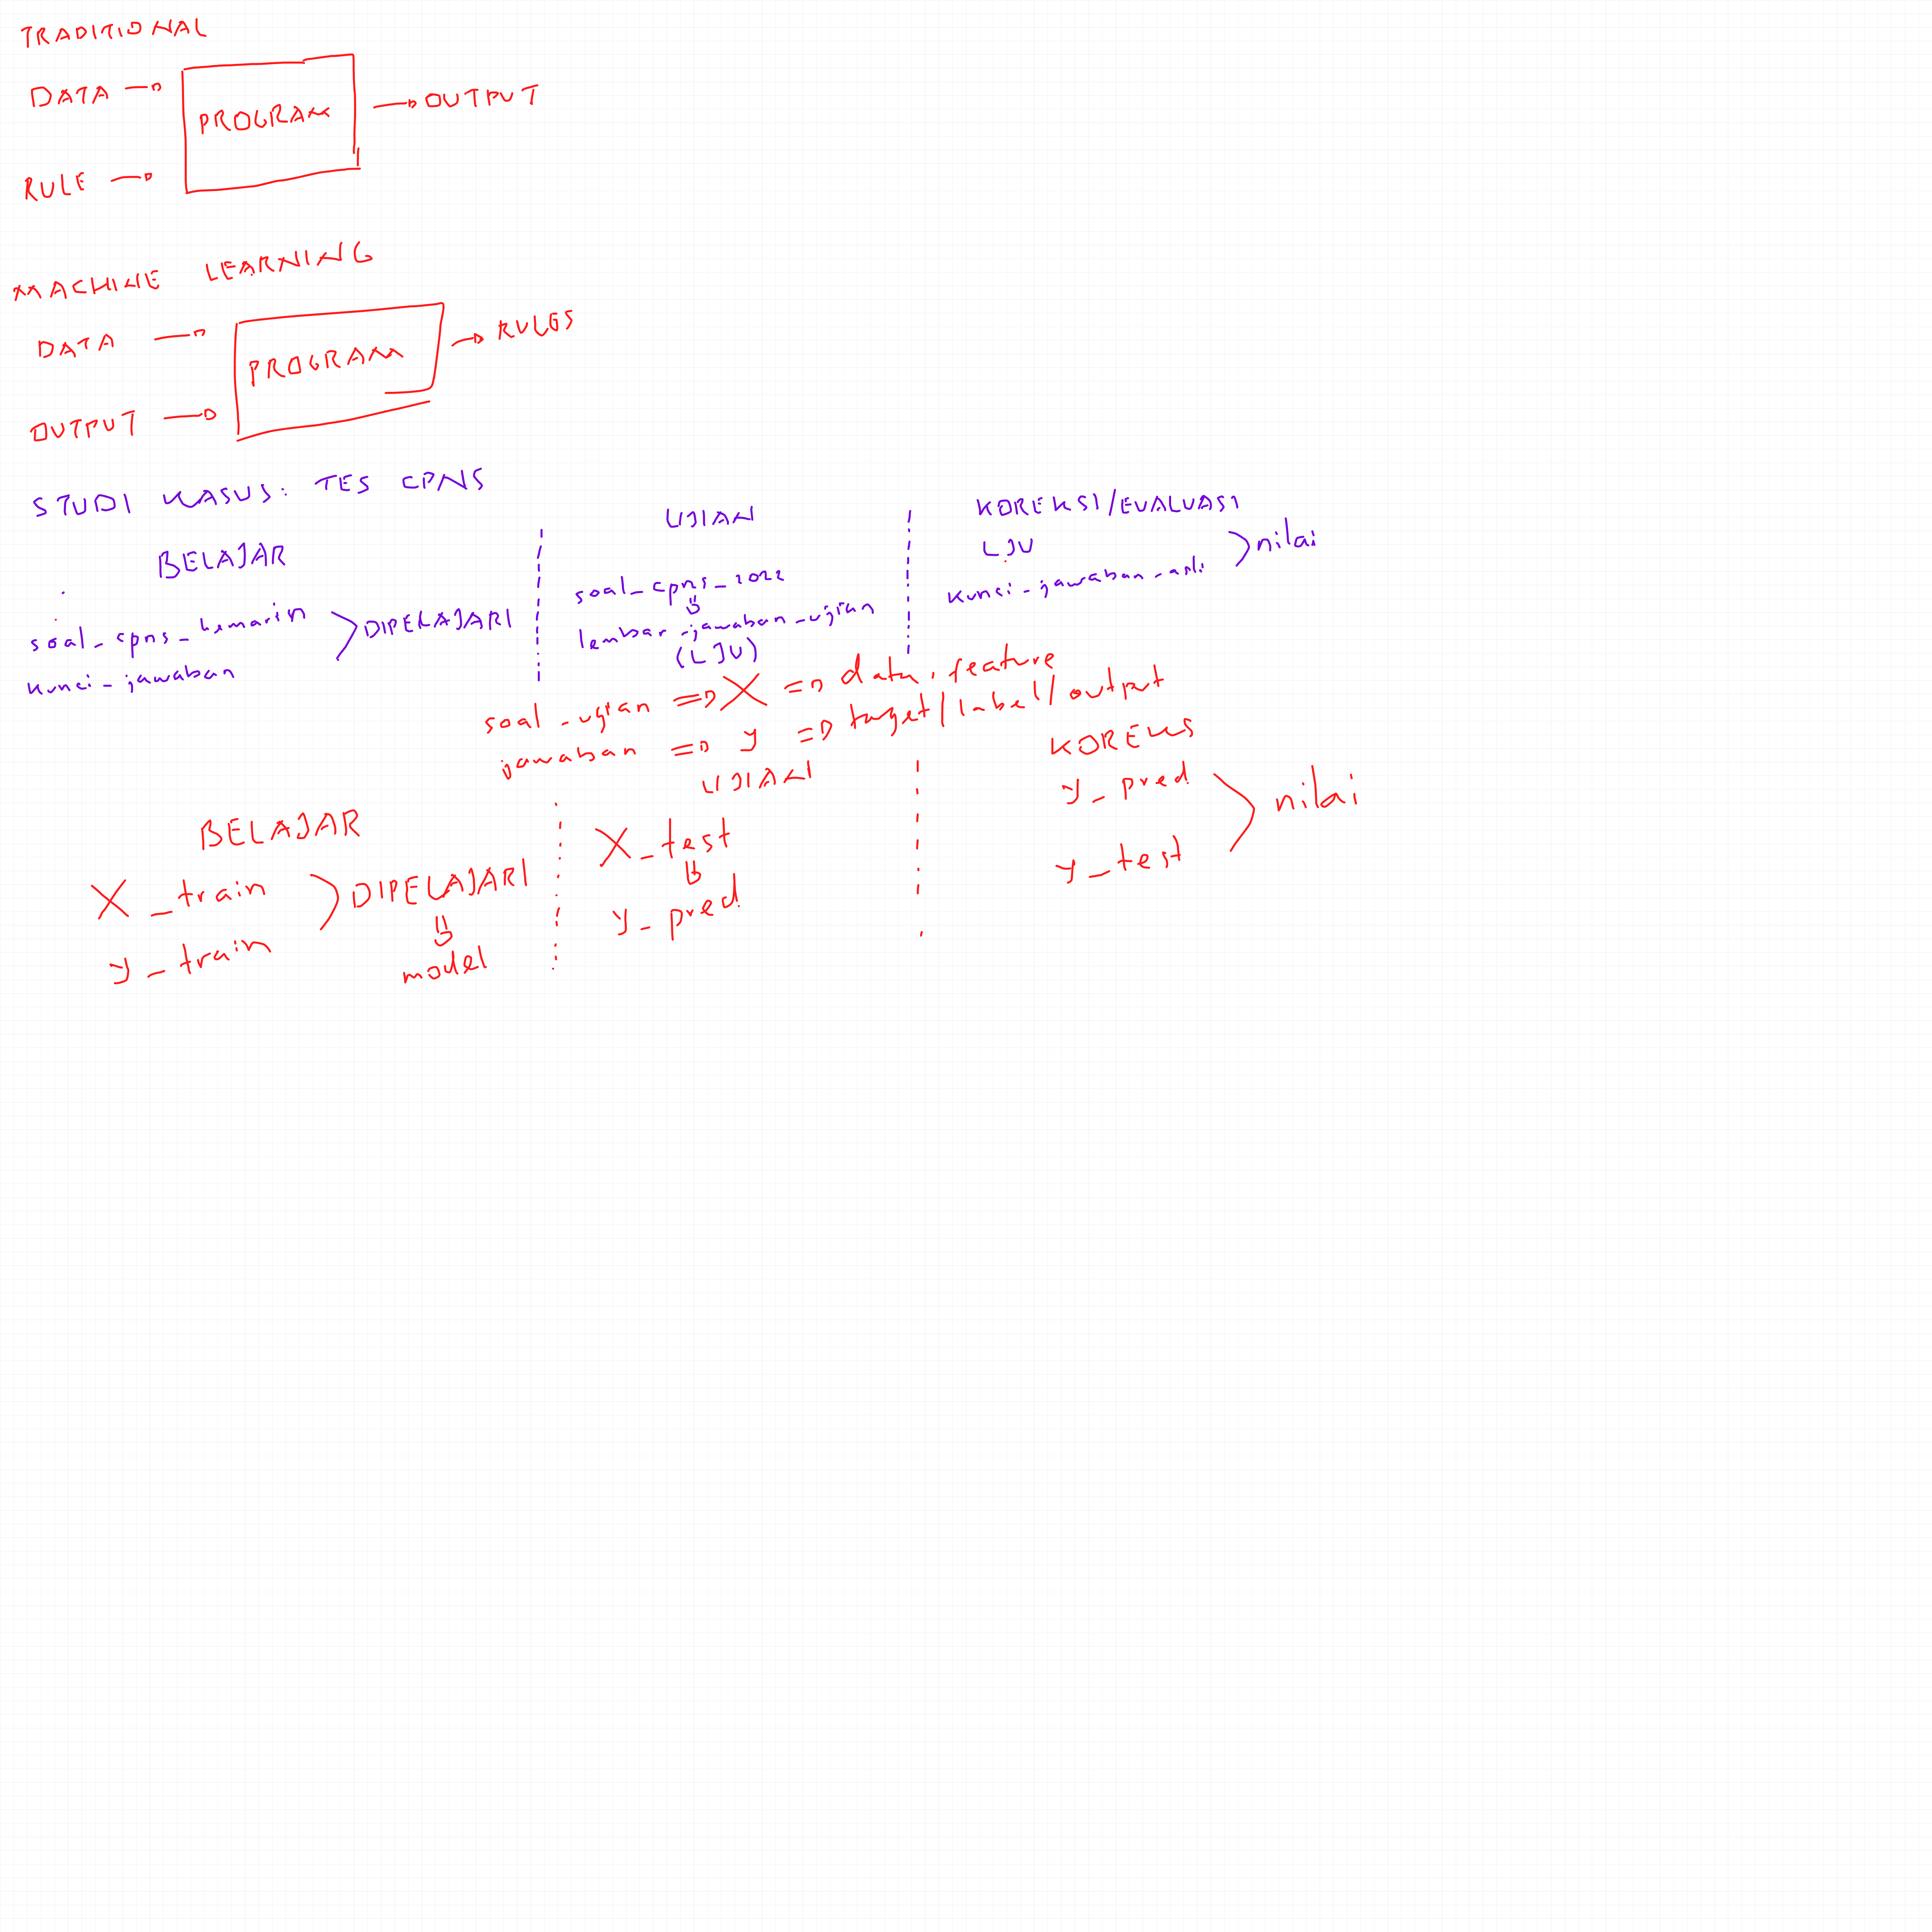 TRADITIONAL
DATA → PROGRAM → OUTPUT
RULE →
MACHINE LEARNING
DATA → PROGRAM → RULES
OUTPUT →
STUDI KASUS: TES CPNS
BELAJAR
soal_cpns_kemarin
kunci_jawaban
DIPELAJARI
UJIAN
soal_cpns_2022
lembar_jawaban_ujian
(LJU)
KOREKSI/EVALUASI
LJU
kunci_jawaban_asli
nilai
soal_ujian => X => data, feature
jawaban => y => target/label/output
BELAJAR
X_train
y_train
DIPELAJARI
model
UJIAN
X_test
y_pred
KOREKS
y_pred
y_test
nilai